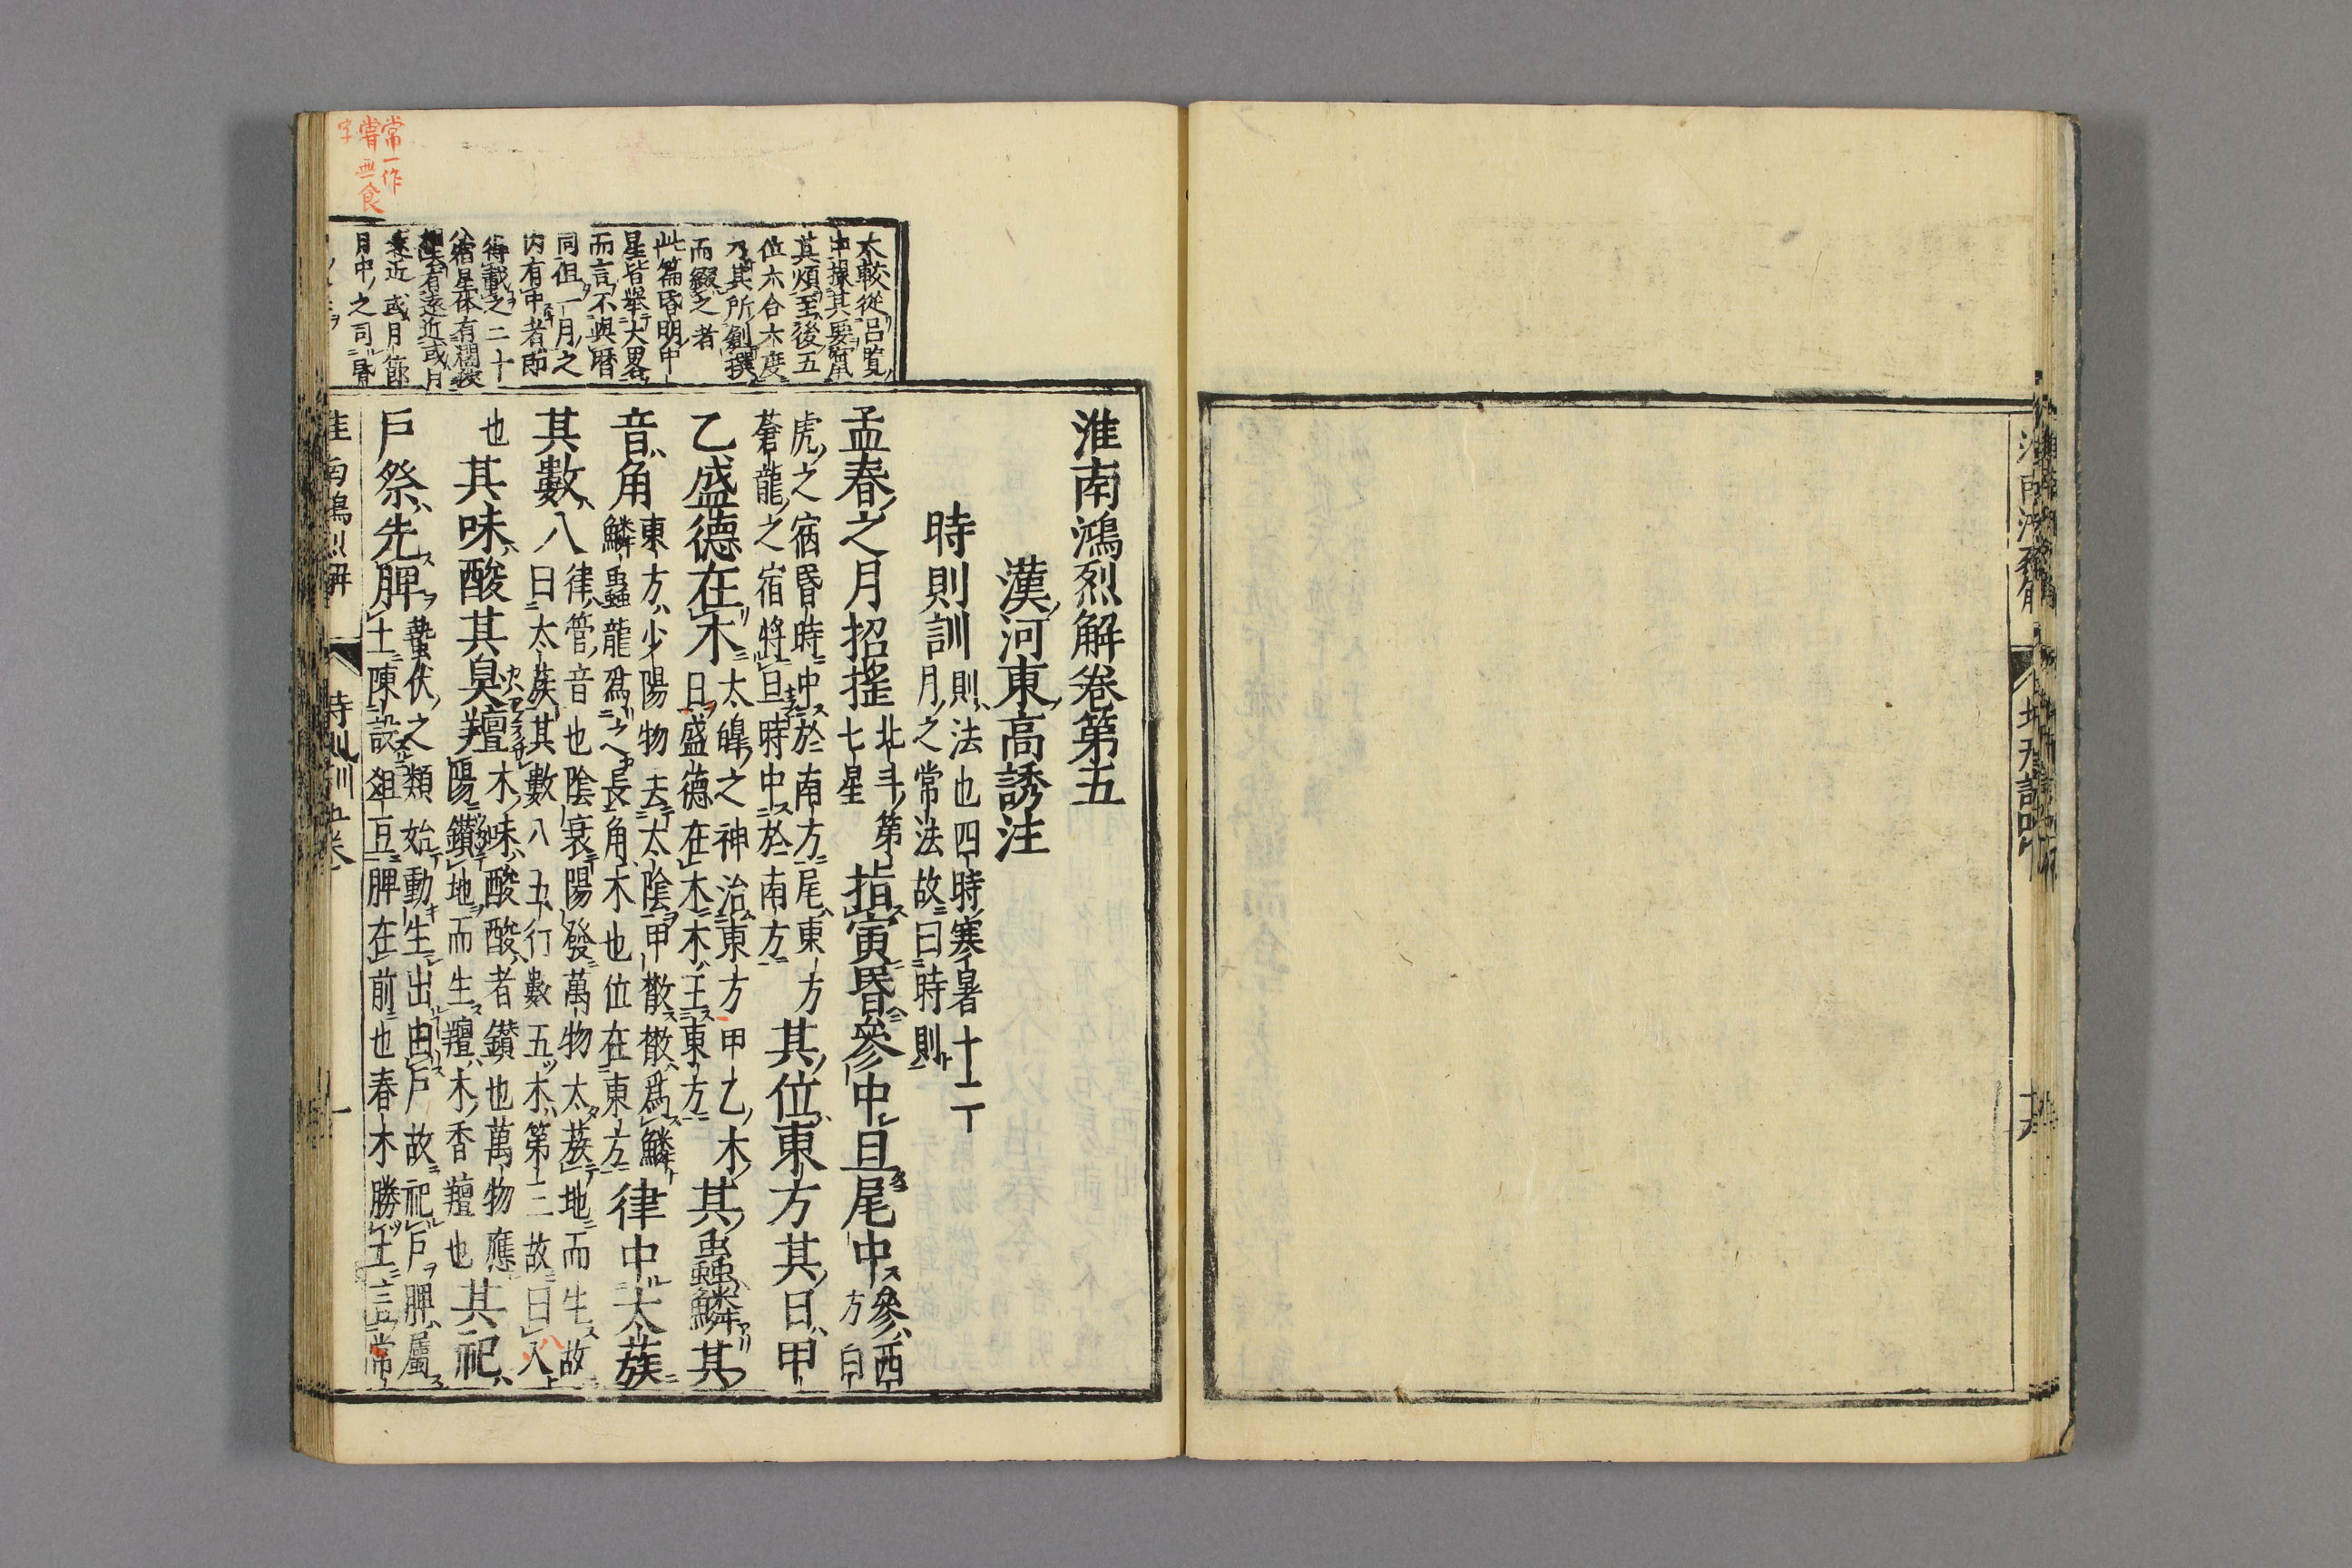 淮南鴻烈解卷第五
漢河東高誘注
時則訓 則法也四時寒暑十二
月之常法故曰時則
孟春之月招搖 北斗第
七星 指寅昏參中旦尾中 參西
方白
虎之宿昏時中於南方尾東方
蒼龍之宿將旦時中於南方 其位東方其日甲
乙盛德在木 太皞之神治東方甲乙木
日盛德在木木王東方 其蟲鱗其
音角 東方少陽物去太陰甲散散爲鱗
鱗蟲龍爲之長角木也位在東方 律中太蔟
其數八 律管音也陰衰陽發萬物太蔟地而生故
曰太蔟其數八五行數五木第三故曰八
也 其味酸其臭羶 木味酸酸者鑚也萬物應
陽鑚地而生羶木香羶也 其祀
戶祭先脾 蟄伏之類始動生出由戶故祀戶脾屬
土陳設俎豆脾在前也春木勝土言常
太較從呂覧
中擇其要
其煩至後五
位六合六度
乃其所創撰
而綴之者
此篇昏明中
星皆舉大畧
而言不與暦
同但一月之
内有中者即
得載之二十
八宿星体有
有遠近或月
近或月節
月中之司昏
常一作
嘗無食
字
淮南鴻烈解 時則訓五卷 一